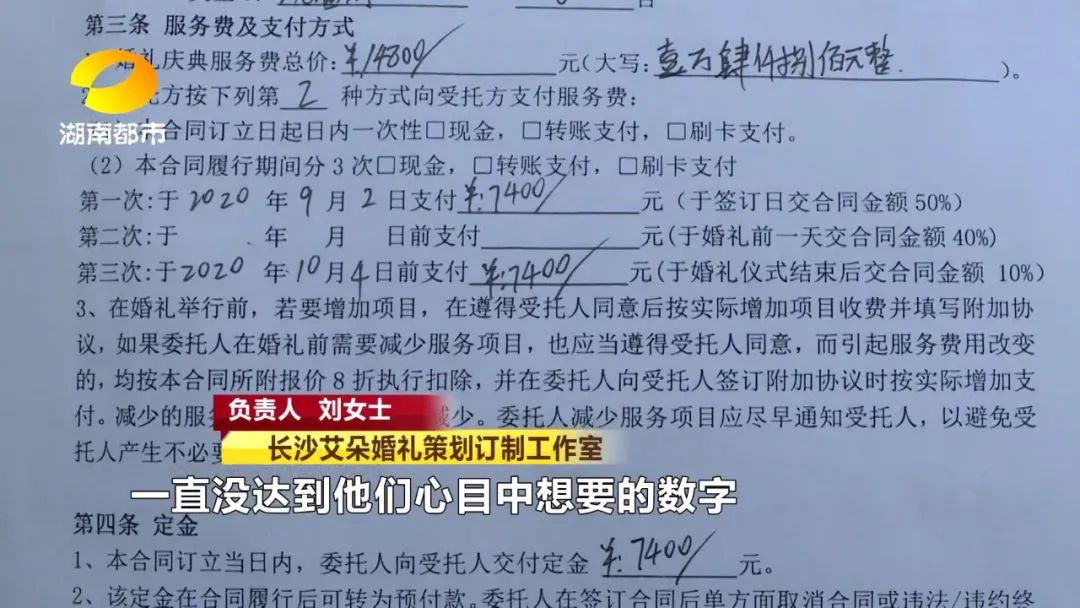 第三条 服务费及支付方式
婚礼庆典服务费总价:¥14800/元(大写:壹万肆仟捌佰元整.)。
方按下列第 2 种方式向受托方支付服务费:
湖南都市
本合同订立日起日内一次性□现金,□转账支付,□刷卡支付。
(2)本合同履行期间分3次□现金,□转账支付,□刷卡支付
第一次:于 2020 年 9 月 2 日支付¥:7400/元(于签订日交合同金额50%)
第二次:于 年 月 日前支付 元(于婚礼前一天交合同金额40%)
第三次:于2020 年10月4日前支付 ¥:7400/元(于婚礼仪式结束后交合同金额 10%)
3、在婚礼举行前,若要增加项目,在遵得受托人同意后按实际增加项目收费并填写附加协
议,如果委托人在婚礼前需要减少服务项目,也应当遵得受托人同意,而引起服务费用改变
的,均按本合同所附报价8折执行扣除,并在委托人向受托人签订附加协议时按实际增加支
付。减少的服 减少。委托人减少服务项目应尽早通知受托人,以避免受
负责人 刘女士
托人产生不必要
长沙艾朵婚礼策划订制工作室
一直没达到他们心目中想要的数字
第四条 定金
1、本合同订立当日内,委托人向受托人交付定金 ¥:7400/元。
2、该定金在合同履行后可转为预付款。委托人在签订合同后单方面取消合同或违法/违约终